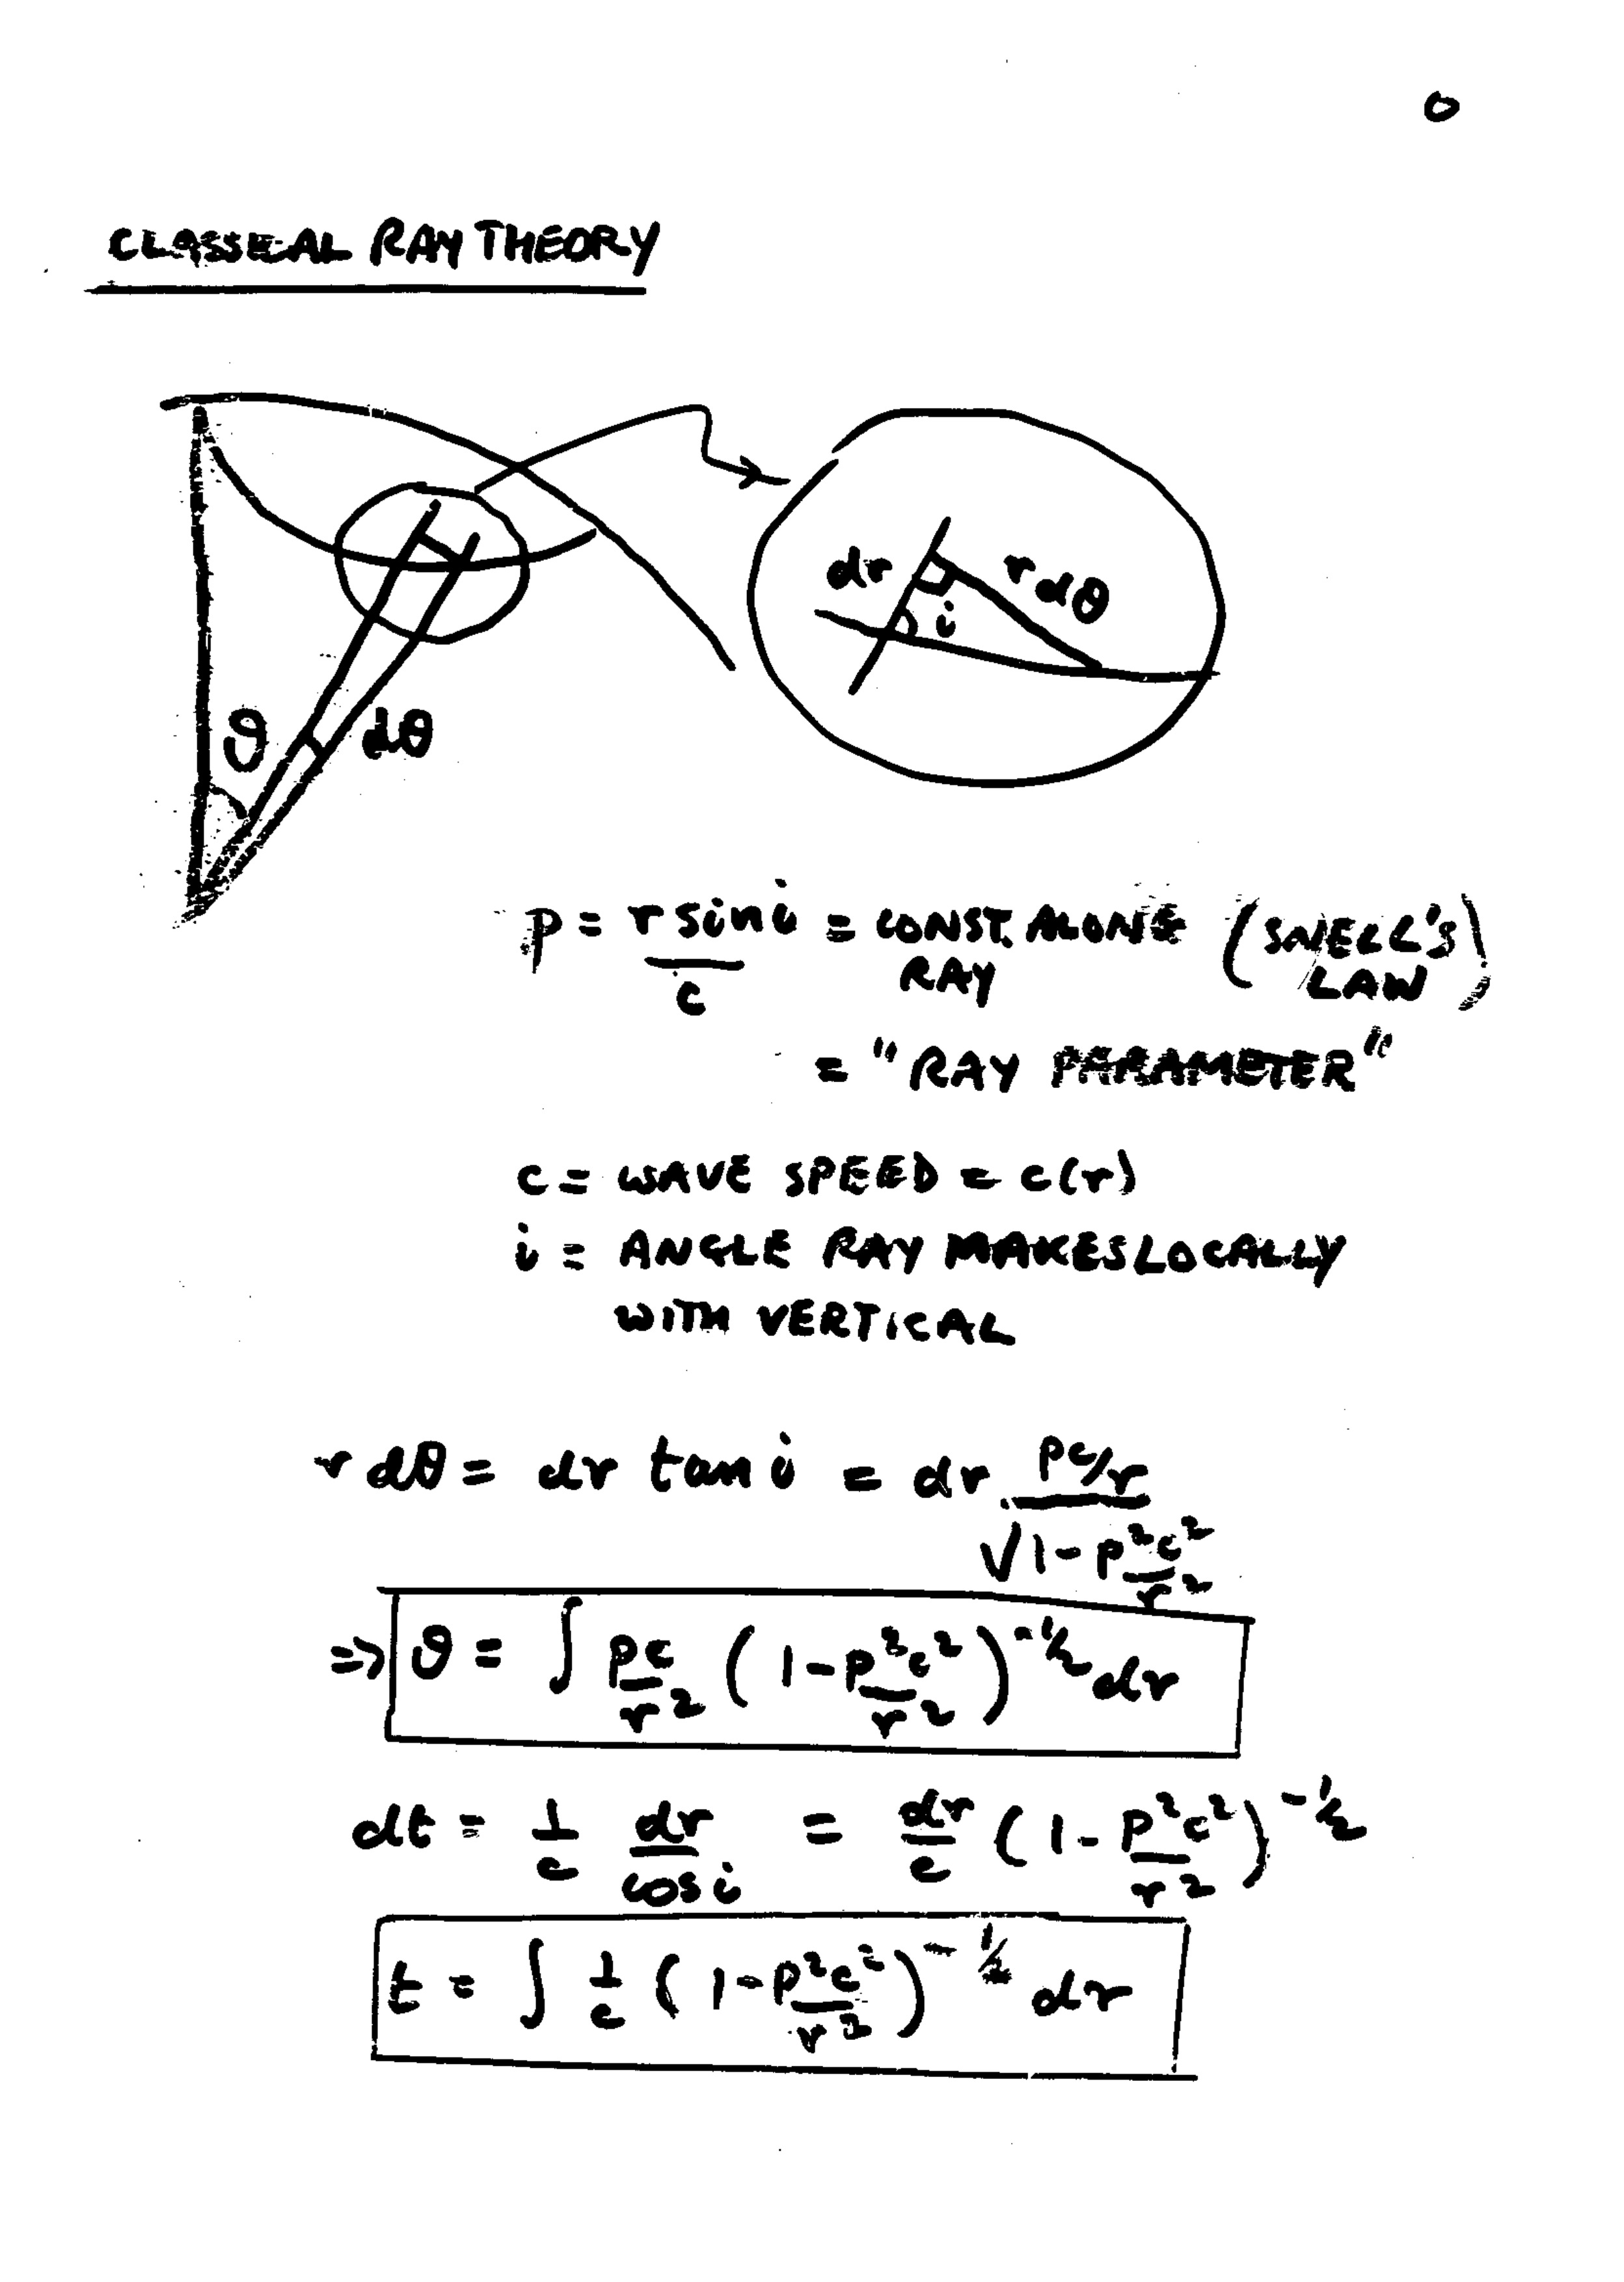 0
CLASSICAL RAY THEORY
dr r dθ
i
ϑ dθ
p = r sin i / c = CONST. ALONG RAY (SNELL'S LAW)
= "RAY PARAMETER"
c = WAVE SPEED = c(r)
i = ANGLE RAY MAKES LOCALLY
WITH VERTICAL
r dθ = dr tan i = dr (pc/r) / √(1 - p²c²/r²)
⇒ ϑ = ∫ pc/r² (1 - p²c²/r²)^-½ dr
dt = 1/c dr/cos i = dr/c (1 - p²c²/r²)^-½
t = ∫ 1/c (1 - p²c²/r²)^-½ dr